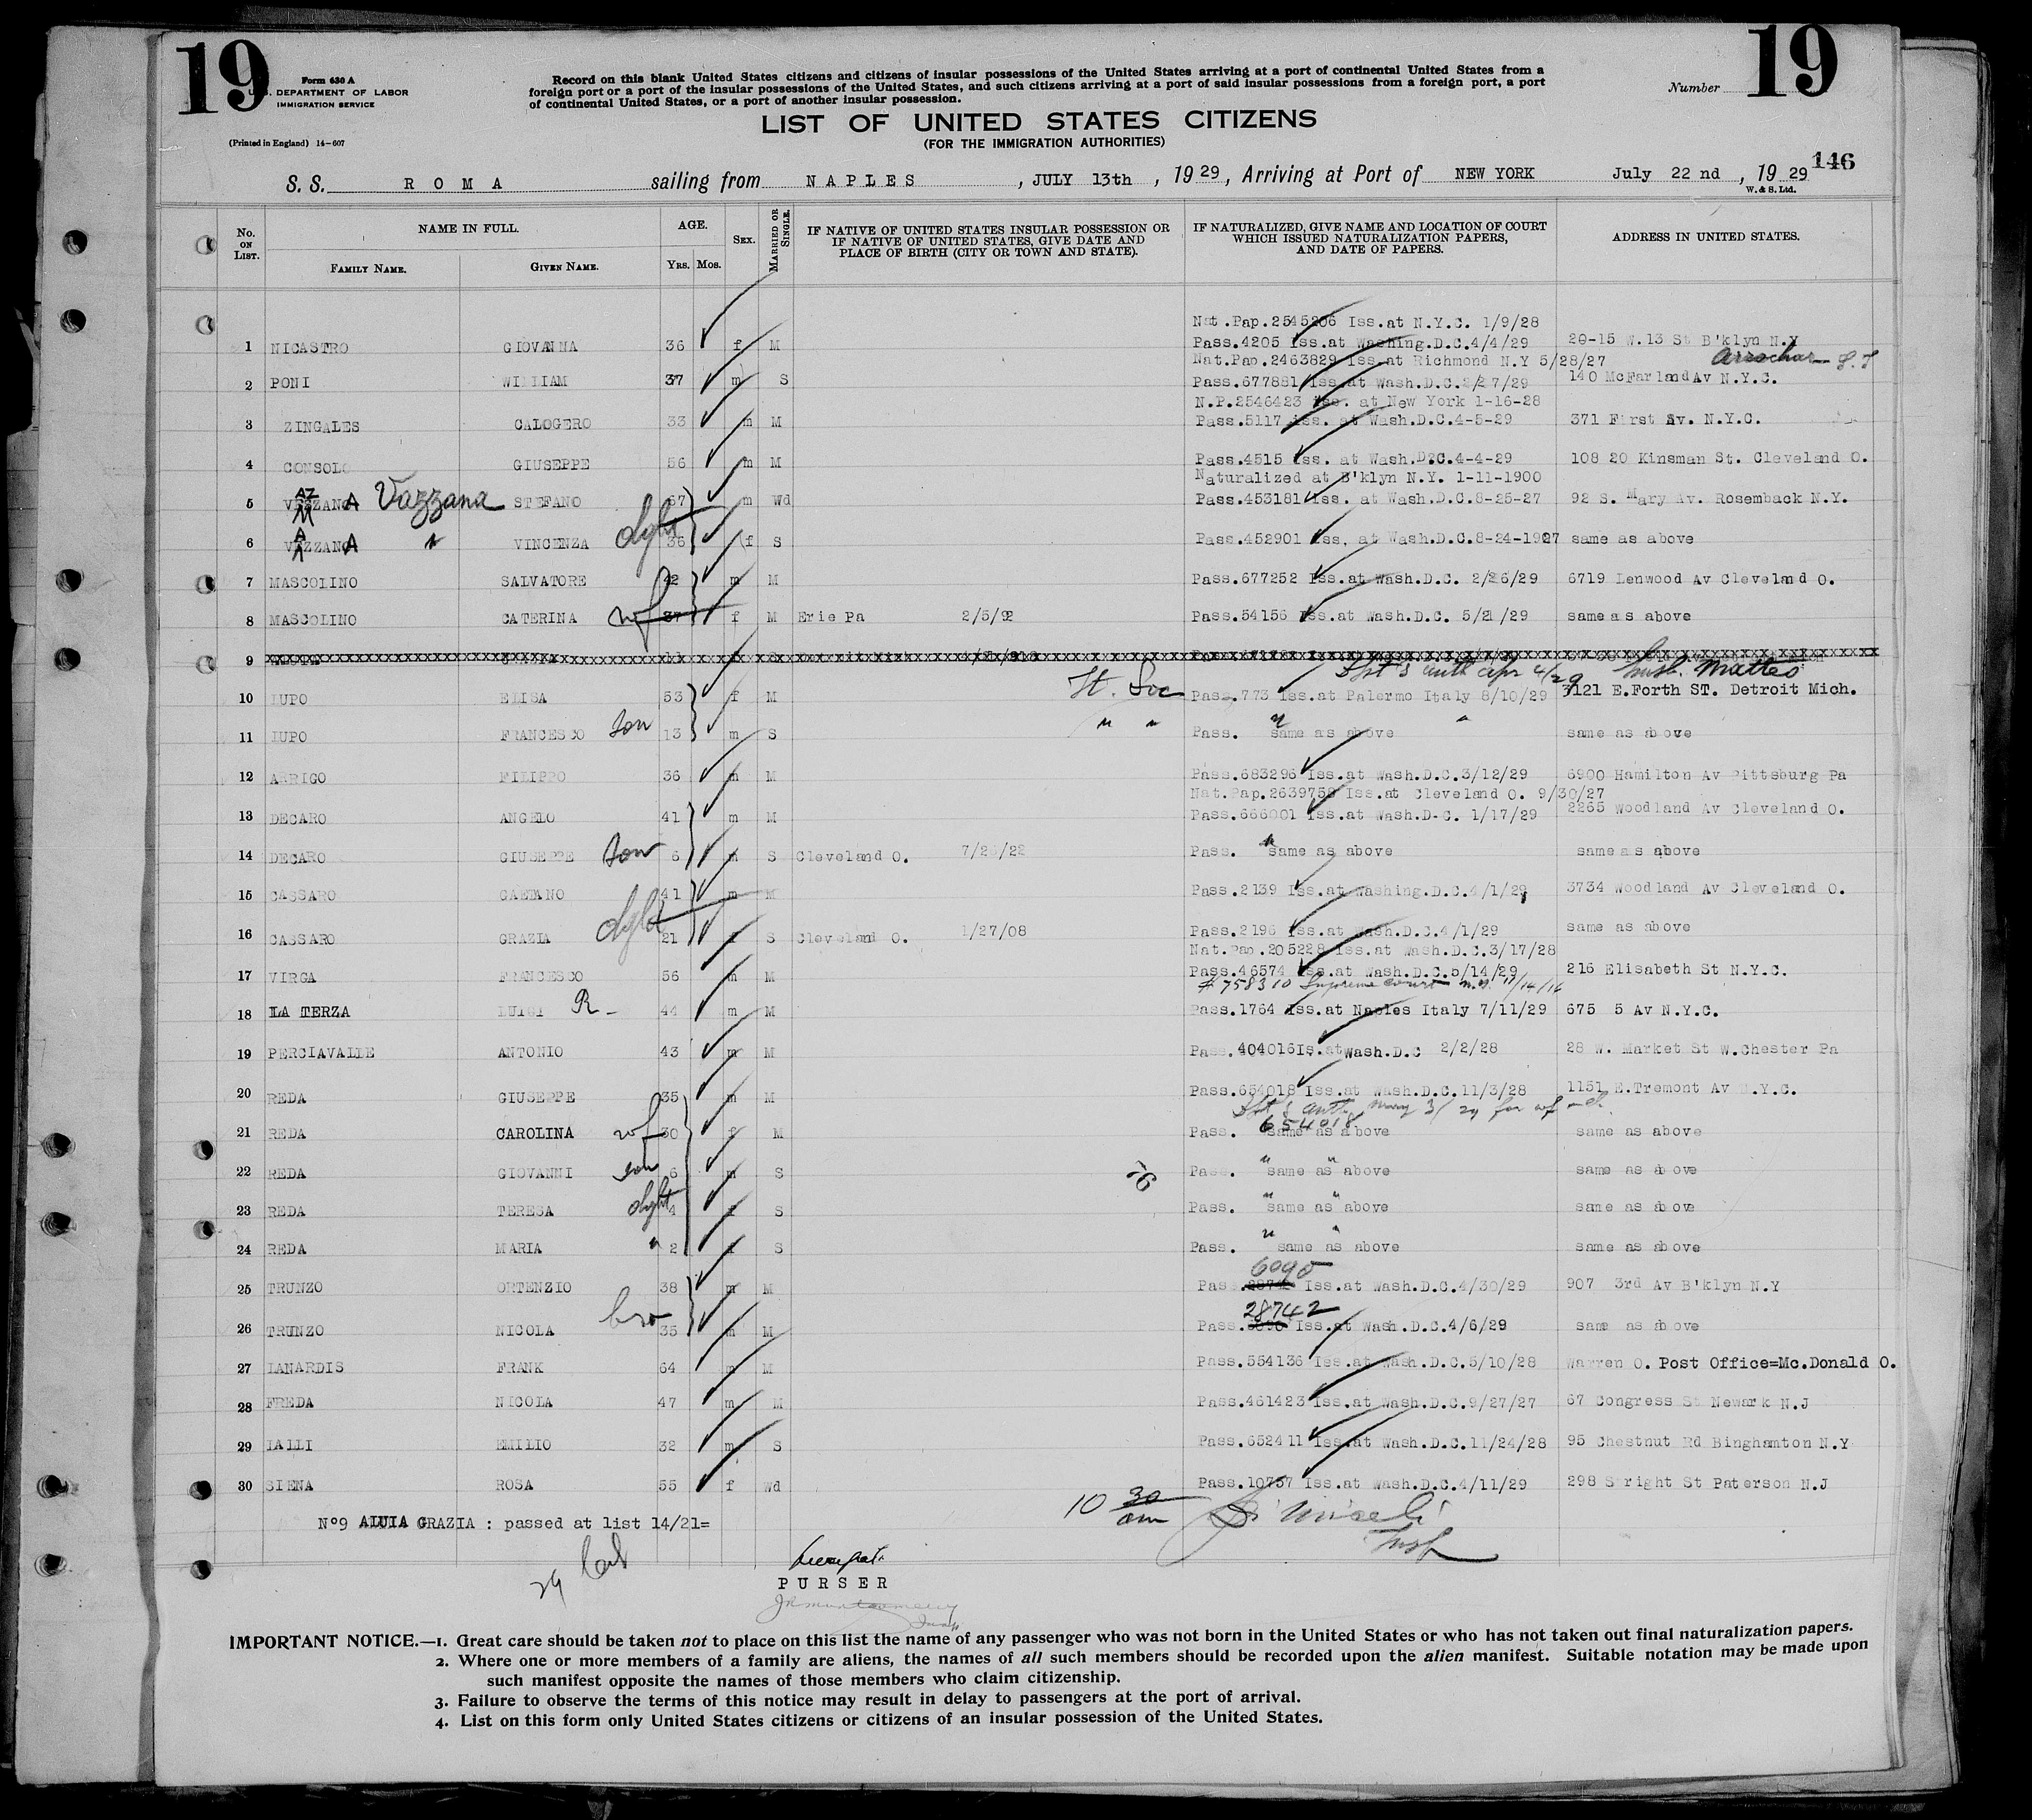 19
19
Form 630 A
U.S. DEPARTMENT OF LABOR
IMMIGRATION SERVICE
(Printed in England) 14-607
Record on this blank United States citizens and citizens of insular possessions of the United States arriving at a port of continental United States from a
foreign port or a port of the insular possessions of the United States, and such citizens arriving at a port of said insular possessions from a foreign port, a port
of continental United States, or a port of another insular possession.
Number
LIST OF UNITED STATES CITIZENS
(FOR THE IMMIGRATION AUTHORITIES)
146
S. S. ROMA sailing from NAPLES, JULY 13th, 1929, Arriving at Port of NEW YORK July 22 nd, 1929
W. & S. Ltd.
No. ON LIST. NAME IN FULL. AGE. SEX. MARRIED OR SINGLE. IF NATIVE OF UNITED STATES INSULAR POSSESSION OR IF NATIVE OF UNITED STATES, GIVE DATE AND PLACE OF BIRTH (CITY OR TOWN AND STATE). IF NATURALIZED, GIVE NAME AND LOCATION OF COURT WHICH ISSUED NATURALIZATION PAPERS, AND DATE OF PAPERS. ADDRESS IN UNITED STATES.
FAMILY NAME. GIVEN NAME. YRS. MOS.
Nat.Pap.2545206 Iss.at N.Y.C. 1/9/28
1 NICASTRO GIOVANNA 36 f M Pass.4205 Iss.at Washing.D.C.4/4/29 20-15 W.13 St B'klyn N.Y
Nat.Pap.2463829 Iss.at Richmond N.Y 5/28/27 Arrochar S.I
2 PONI WILLIAM 37 m S Pass.677881 Iss.at Wash.D.C.2/27/29 140 McFarland Av N.Y.C.
N.P.2546423 iss. at New York 1-16-28
3 ZINGALES CALOGERO 33 m M Pass.5117 iss. at Wash.D.C.4-5-29 371 First Av. N.Y.C.
4 CONSOLO GIUSEPPE 56 m M Pass.4515 iss. at Wash.D.C.4-4-29 108 20 Kinsman St. Cleveland O.
Naturalized at B'klyn N.Y. 1-11-1900
5 VEZZANO A Vazzana STEFANO 67 m Wd Pass.453181 iss. at Wash.D.C.8-25-27 92 S. Mary Av. Rosemback N.Y.
6 VAZZANO A " VINCENZA dght 36 f S Pass.452901 iss. at Wash.D.C.8-24-1927 same as above
7 MASCOLINO SALVATORE 42 m M Pass.677252 Iss.at Wash.D.C. 2/26/29 6719 Lenwood Av Cleveland O.
8 MASCOLINO CATERINA wf 37 f M Erie Pa 2/5/92 Pass.54156 Iss.at Wash.D.C. 5/21/29 same as above
9
husb. Matteo
10 LUPO ELISA 53 f M Pass.773 Iss.at Palermo Italy 8/10/29 3121 E.Forth ST. Detroit Mich.
11 LUPO FRANCESCO son 13 m S " " Pass. " same as above " same as above
12 ARRIGO FILIPPO 36 m M Pass.683296 Iss.at Wash.D.C.3/12/29 6900 Hamilton Av Pittsburg Pa
Nat.Pap.2639758 Iss.at Cleveland O. 9/30/27
13 DECARO ANGELO 41 m M Pass.666001 Iss.at Wash.D-C. 1/17/29 2265 Woodland Av Cleveland O.
14 DECARO GIUSEPPE son 6 m S Cleveland O. Pass. " same as above same as above
15 CASSARO GAETANO 41 m M Pass.2139 Iss.at Washing.D.C.4/1/29 3734 Woodland Av Cleveland O.
16 CASSARO GRAZIA dght 21 f S Cleveland O. 1/27/08 Pass.2196 Iss.at Wash.D.C.4/1/29 same as above
Nat.Pap.205228 Iss.at Wash.D.C.3/17/28
17 VIRGA FRANCESCO 56 m M Pass.46574 Iss.at Wash.D.C.5/14/29 216 Elisabeth St N.Y.C.
# 758310 Supreme court N.Y. 11/14/16
18 LA TERZA LUIGI R- 44 m M Pass.1764 Iss.at Naples Italy 7/11/29 675 5 Av N.Y.C.
19 PERCIAVALLE ANTONIO 43 m M Pass.404016 Is.at Wash.D.C 2/2/28 28 W. Market St W.Chester Pa
20 REDA GIUSEPPE 35 m M Pass.654018 Iss.at Wash.D.C.11/3/28 1151 E.Tremont Av N.Y.C.
21 REDA CAROLINA wf 30 f M Pass. 654018 same as above same as above
22 REDA GIOVANNI son 6 m S Pass. " same as " above same as above
23 REDA TERESA dght 4 f S Pass. " same as " above same as above
24 REDA MARIA " 2 f S Pass. " same as " above same as above
6095
25 TRUNZO ORTENZIO 38 m M Pass. Iss.at Wash.D.C.4/30/29 907 3rd Av B'klyn N.Y
28742
26 TRUNZO NICOLA bro 35 m M Pass. Iss.at Wash.D.C.4/6/29 same as above
27 LANARDIS FRANK 64 m M Pass.554136 Iss.at Wash.D.C.5/10/28 Warren O. Post Office=Mc.Donald O.
28 FREDA NICOLA 47 m M Pass.461423 Iss.at Wash.D.C.9/27/27 67 Congress St Newark N.J
29 LALLI EMILIO 32 m S Pass.652411 Iss.at Wash.D.C.11/24/28 95 Chestnut Rd Binghamton N.Y
30 SIENA ROSA 55 f Wd Pass.10757 Iss.at Wash.D.C.4/11/29 298 Sright St Paterson N.J
10 30 am
Nº9 ALUIA GRAZIA : passed at list 14/21=
29
PURSER
IMPORTANT NOTICE.—1. Great care should be taken not to place on this list the name of any passenger who was not born in the United States or who has not taken out final naturalization papers.
2. Where one or more members of a family are aliens, the names of all such members should be recorded upon the alien manifest. Suitable notation may be made upon
such manifest opposite the names of those members who claim citizenship.
3. Failure to observe the terms of this notice may result in delay to passengers at the port of arrival.
4. List on this form only United States citizens or citizens of an insular possession of the United States.